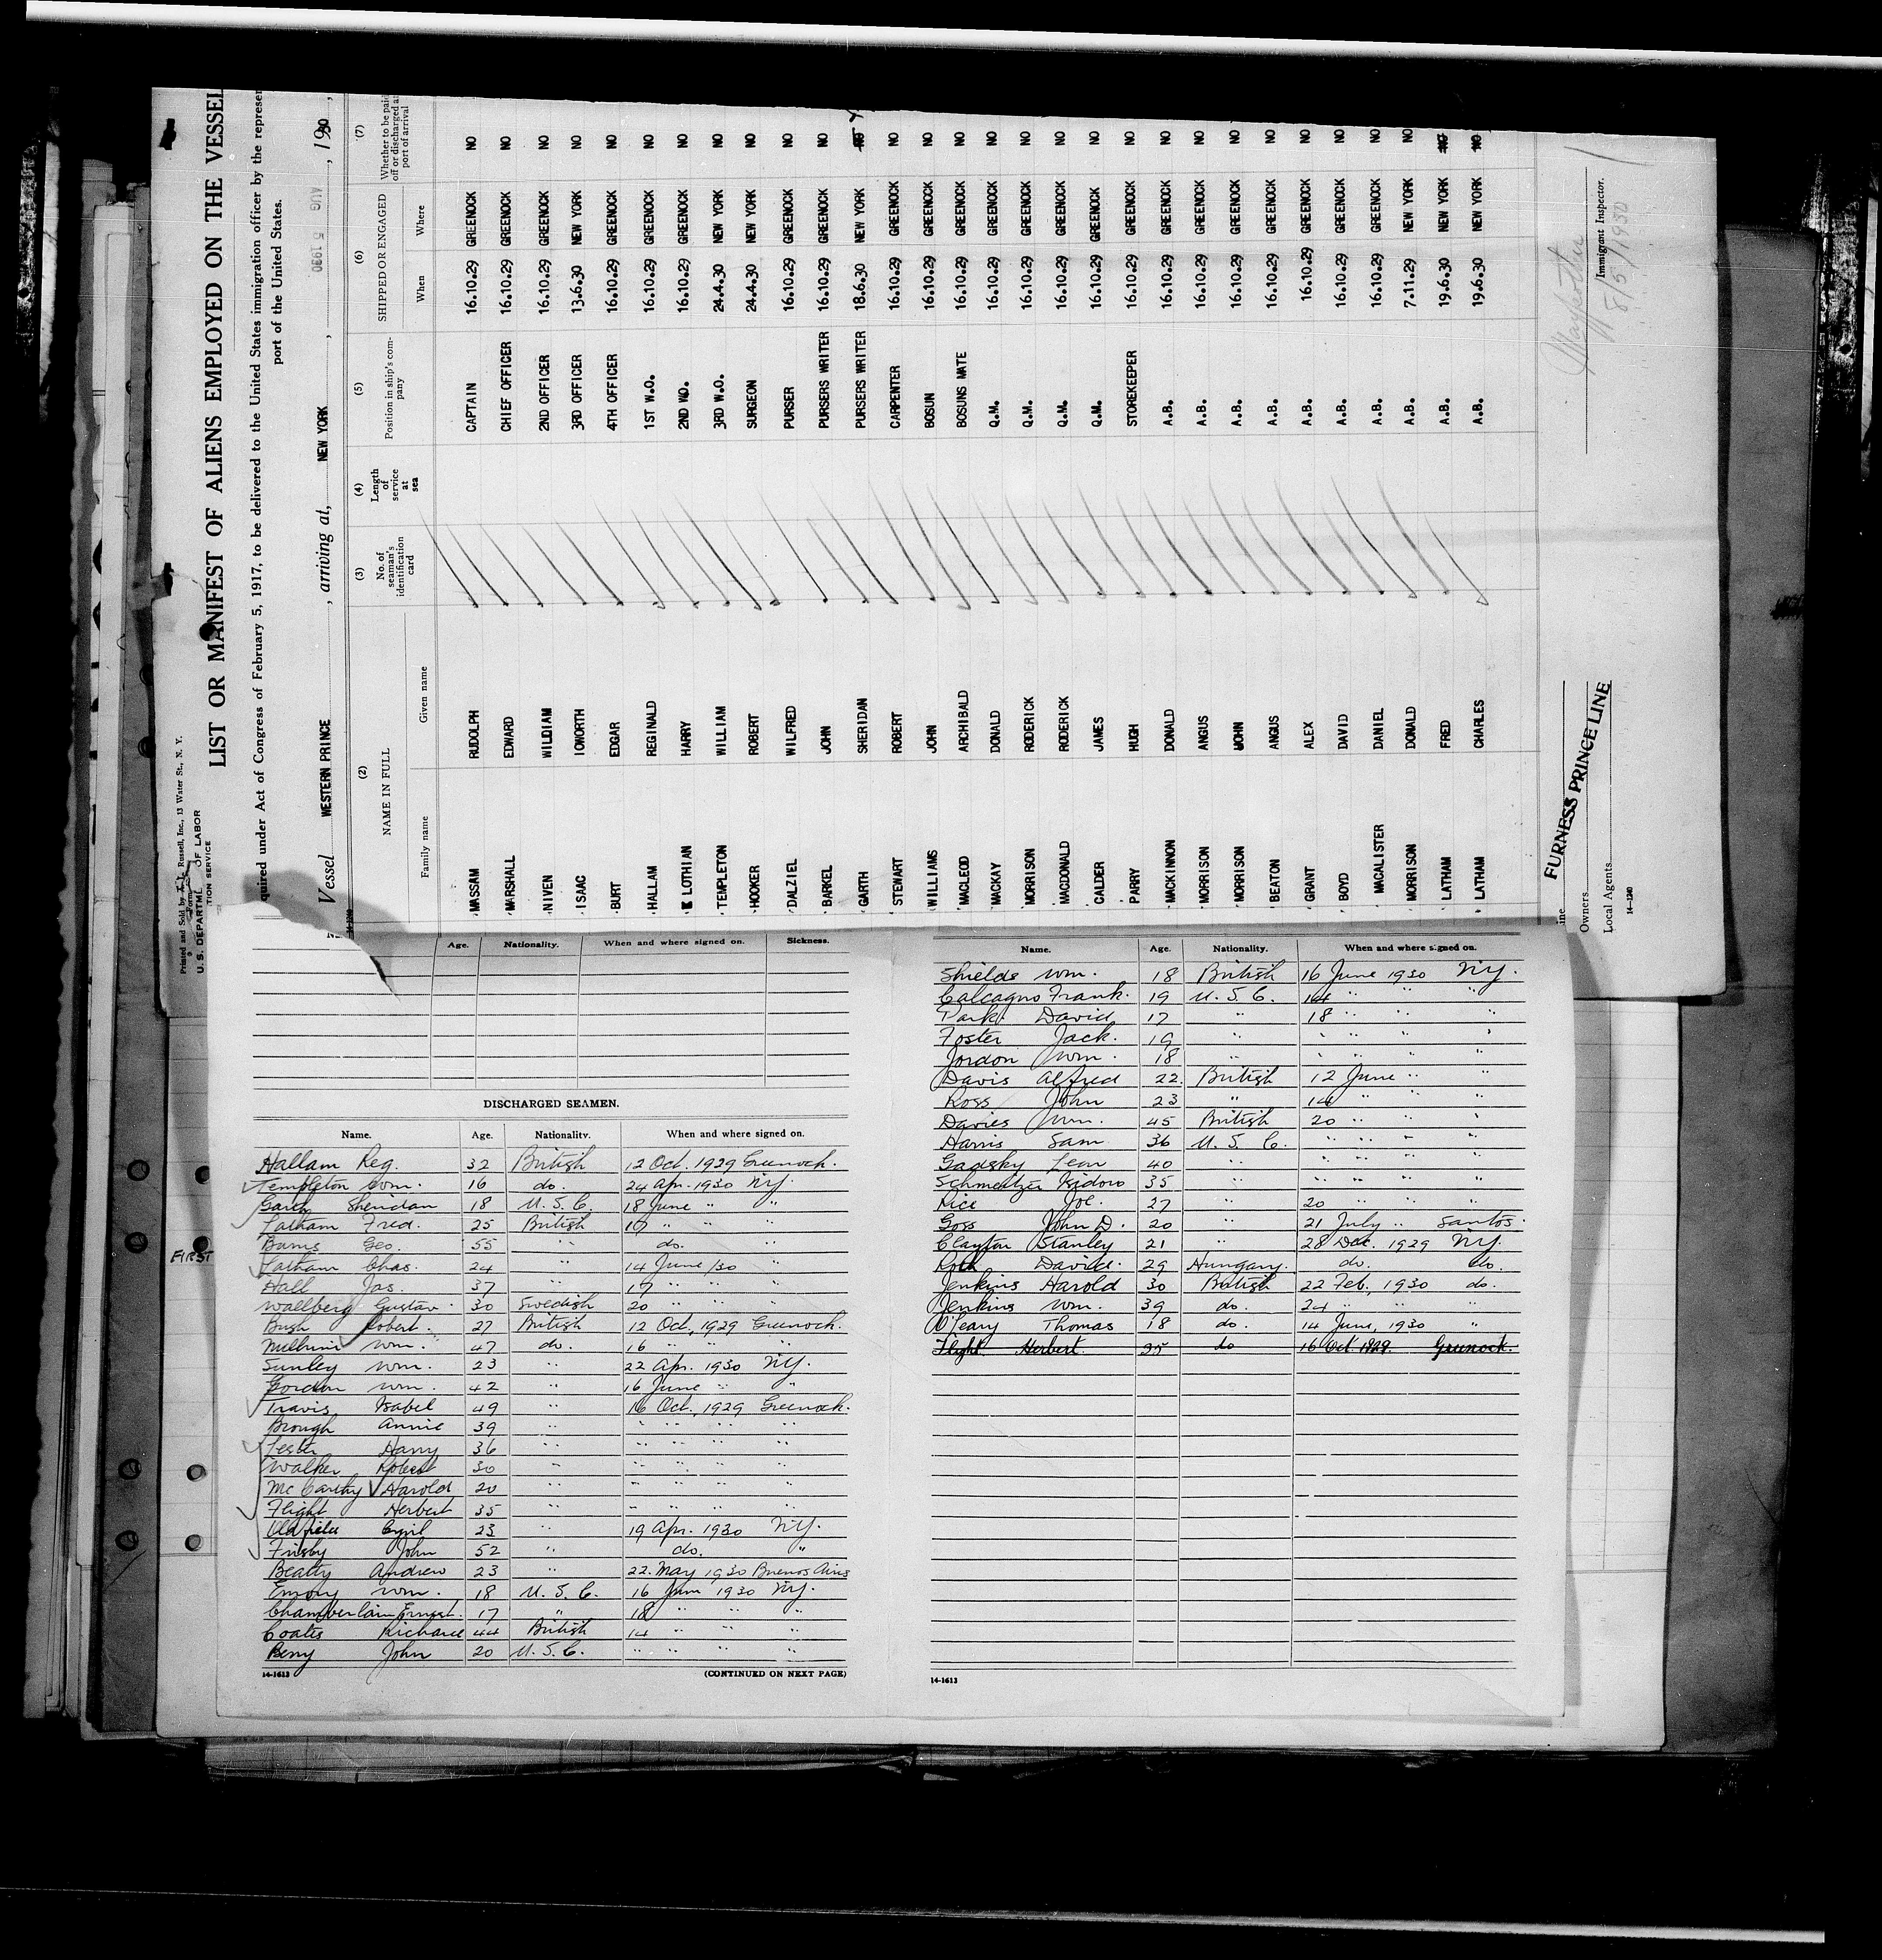 Printed and Sold by Russell, Inc., 13 Water St., N. Y.
Form
U. S. DEPARTME OF LABOR
TION SERVICE
LIST OR MANIFEST OF ALIENS EMPLOYED ON THE VESSEL
quired under Act of Congress of February 5, 1917, to be delivered to the United States immigration officer by the represen
port of the United States.
Vessel WESTERN PRINCE , arriving at, NEW YORK , AUG 5 1930 , 1930,
(2) (3) (4) (5) (6) (7)
NAME IN FULL No. of seaman's identification card Length of service at sea Position in ship's company SHIPPED OR ENGAGED Whether to be paid off or discharged at port of arrival
Family name Given name When Where
MASSAM RUDOLPH CAPTAIN 16.10.29 GREENOCK NO
MARSHALL EDWARD CHIEF OFFICER 16.10.29 GREENOCK NO
NIVEN WILDIAM 2ND OFFICER 16.10.29 GREENOCK NO
ISAAC IOWORTH 3RD OFFICER 13.6.30 NEW YORK NO
BURT EDGAR 4TH OFFICER 16.10.29 GREENOCK NO
HALLAM REGINALD 1ST W.O. 16.10.29 GREENOCK NO
LOTHIAN HARRY 2ND WO. 16.10.29 GREENOCK NO
TEMPLETON WILLIAM 3RD W.O. 24.4.30 NEW YORK NO
HOOKER ROBERT SURGEON 24.4.30 NEW YORK NO
DALZIEL WILFRED PURSER 16.10.29 GREENOCK NO
BARKEL JOHN PURSERS WRITER 16.10.29 GREENOCK NO
GARTH SHERIDAN PURSERS WRITER 18.6.30 NEW YORK
STEWART ROBERT CARPENTER 16.10.29 GREENOCK NO
WILLIAMS JOHN BOSUN 16.10.29 GREENOCK NO
MACLEOD ARCHIBALD BOSUNS MATE 16.10.29 GREENOCK NO
MACKAY DONALD Q.M. 16.10.29 GREENOCK NO
MORRISON RODERICK Q.M. 16.10.29 GREENOCK NO
MACDONALD RODERICK Q.M. 16.10.29 GREENOCK NO
CALDER JAMES Q.M. 16.10.29 GREENOCK NO
PARRY HUGH STOREKEEPER 16.10.29 GREENOCK NO
MACKINNON DONALD A.B. 16.10.29 GREENOCK NO
MORRISON ANGUS A.B. 16.10.29 GREENOCK NO
MORRISON JOHN A.B. 16.10.29 GREENOCK NO
BEATON ANGUS A.B. 16.10.29 GREENOCK NO
GRANT ALEX A.B. 16.10.29 GREENOCK NO
BOYD DAVID A.B. 16.10.29 GREENOCK NO
MACALISTER DANIEL A.B. 16.10.29 GREENOCK NO
MORRISON DONALD A.B. 7.11.29 NEW YORK NO
LATHAM FRED A.B. 19.6.30 NEW YORK NO
LATHAM CHARLES A.B. 19.6.30 NEW YORK NO
8/5/1930
Immigrant Inspector.
ine FURNESS PRINCE LINE
Owners
Local Agents
14-1240
FIRST
Age. Nationality. When and where signed on. Sickness.
DISCHARGED SEAMEN.
Name. Age. Nationality. When and where signed on.
Hallam Reg. 32 British 12 Oct. 1929 Greenock.
Templeton Wm. 16 do. 24 Apr. 1930 NY.
Garth Sheridan 18 U.S.C. 18 June " "
Latham Fred. 25 British 17 " " "
Barns Geo. 55 " do. "
Latham Chas. 24 " 14 June /30 "
Hall Jas. 37 " 17 " " "
Wallberg Gustav 30 Swedish 20 " " "
Bush Robert. 27 British 12 Oct. 1929 Greenock.
Wm. 47 do. 16 " " "
Sunley Wm. 23 " 22 Apr. 1930 NY.
Gordon Wm. 42 " 16 June " "
Travis Isabel 49 " 16 Oct. 1929 Greenock.
Brough Annie 39 " " " " "
Lester Harry 36 " " " " "
Walker Robert 30 " " " " "
McCarthy Harold 20 " " " " "
Flight Herbert 35 " " " " "
Oldfield Cyril 23 " 19 Apr. 1930 NY.
Frisby John 52 " do. "
Beatty Andrew 23 " 22 May 1930 Buenos Aires
Emory Wm. 18 U.S.C. 16 June 1930 NY.
Chamberlain Ernest. 17 " 18 " " "
Coates Richard 44 British 14 " " "
Berry John 20 U.S.C. " " " "
14-1613 (CONTINUED ON NEXT PAGE)
Name. Age. Nationality. When and where signed on.
Shields Wm. 18 British 16 June 1930 NY.
Calcagno Frank. 19 U.S.C. 14 " " "
Park David 17 " 18 " " "
Foster Jack. 19 " " " " "
Jordon Wm. 18 " " " " "
Davis Alfred 22. British 12 June " "
Ross John 23 " 14 " " "
Davies Wm. 45 British 20 " " "
Harris Sam 36 U.S.C. " " " "
Gadsky Leon 40 " " " " "
Schmeltzer Isidoro 35 " " " " "
Rice Joe. 27 " 20 " " "
Goss John D. 20 " 21 July " Santos.
Clayton Stanley 21 " 28 Dec. 1929 NY.
Roth David. 29 Hungary. do. do.
Jenkins Harold 30 British 22 Feb. 1930 do.
Jenkins Wm. 39 do. 24 " " "
O'Leary Thomas 18 do. 14 June, 1930 "
Flight Herbert 35 do 16 Oct. 1929. Greenock.
14-1613